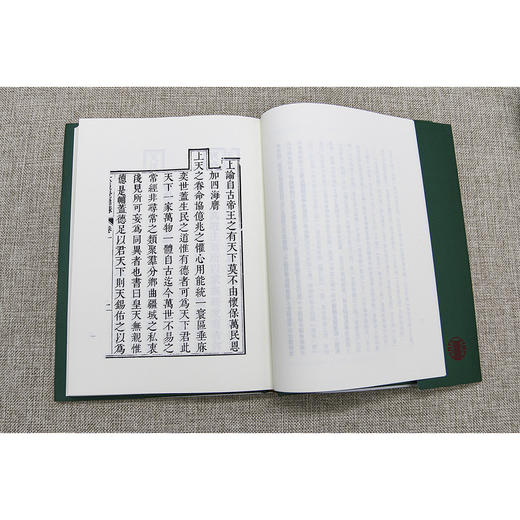 上諭自古帝王之有天下莫不由懷保萬民恩
加四海膺
上天之眷命協億兆之懽心用能統一寰區垂庥
奕世蓋生民之道惟有德者可爲天下君此
天下一家萬物一體自古迄今萬世不易之
常經非尋常之類聚羣分鄉曲疆域之私衷
淺見所可妄爲同異者也書曰皇天無親惟
德是輔蓋德足以君天下則天錫佑之以爲
卷一